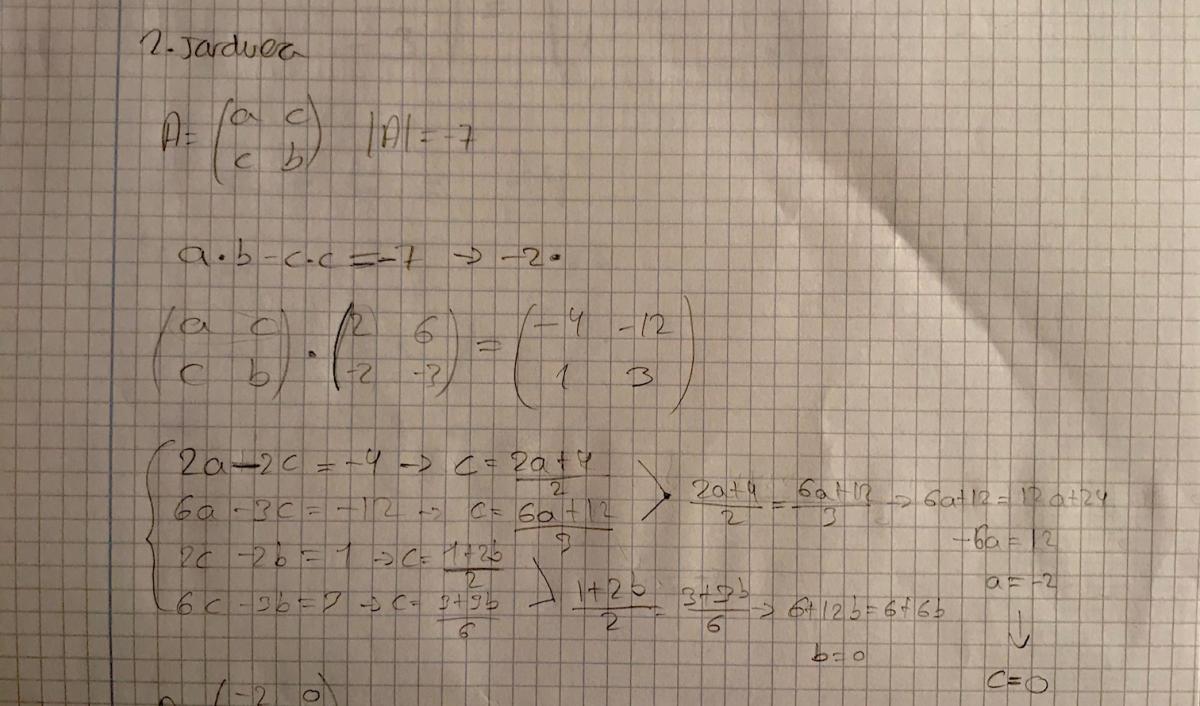 2. Jarduera
A = (a c
c b) |A| = -7
a·b - c·c = -7 → -2·
(a c
c b) · (2 6
-2 -3) = (-4 -12
1 3)
2a - 2c = -4 → c = 2a+4/2
6a - 3c = -12 → c = 6a+12/3
2a+4/2 = 6a+12/3 → 6a+12 = 12a+24
-6a = 12
a = -2
↓
c = 0
2c - 2b = 1 → c = 1+2b/2
6c - 3b = 3 → c = 3+3b/6
1+2b/2 = 3+3b/6 → 6+12b = 6+6b
b = 0
(-2 0)